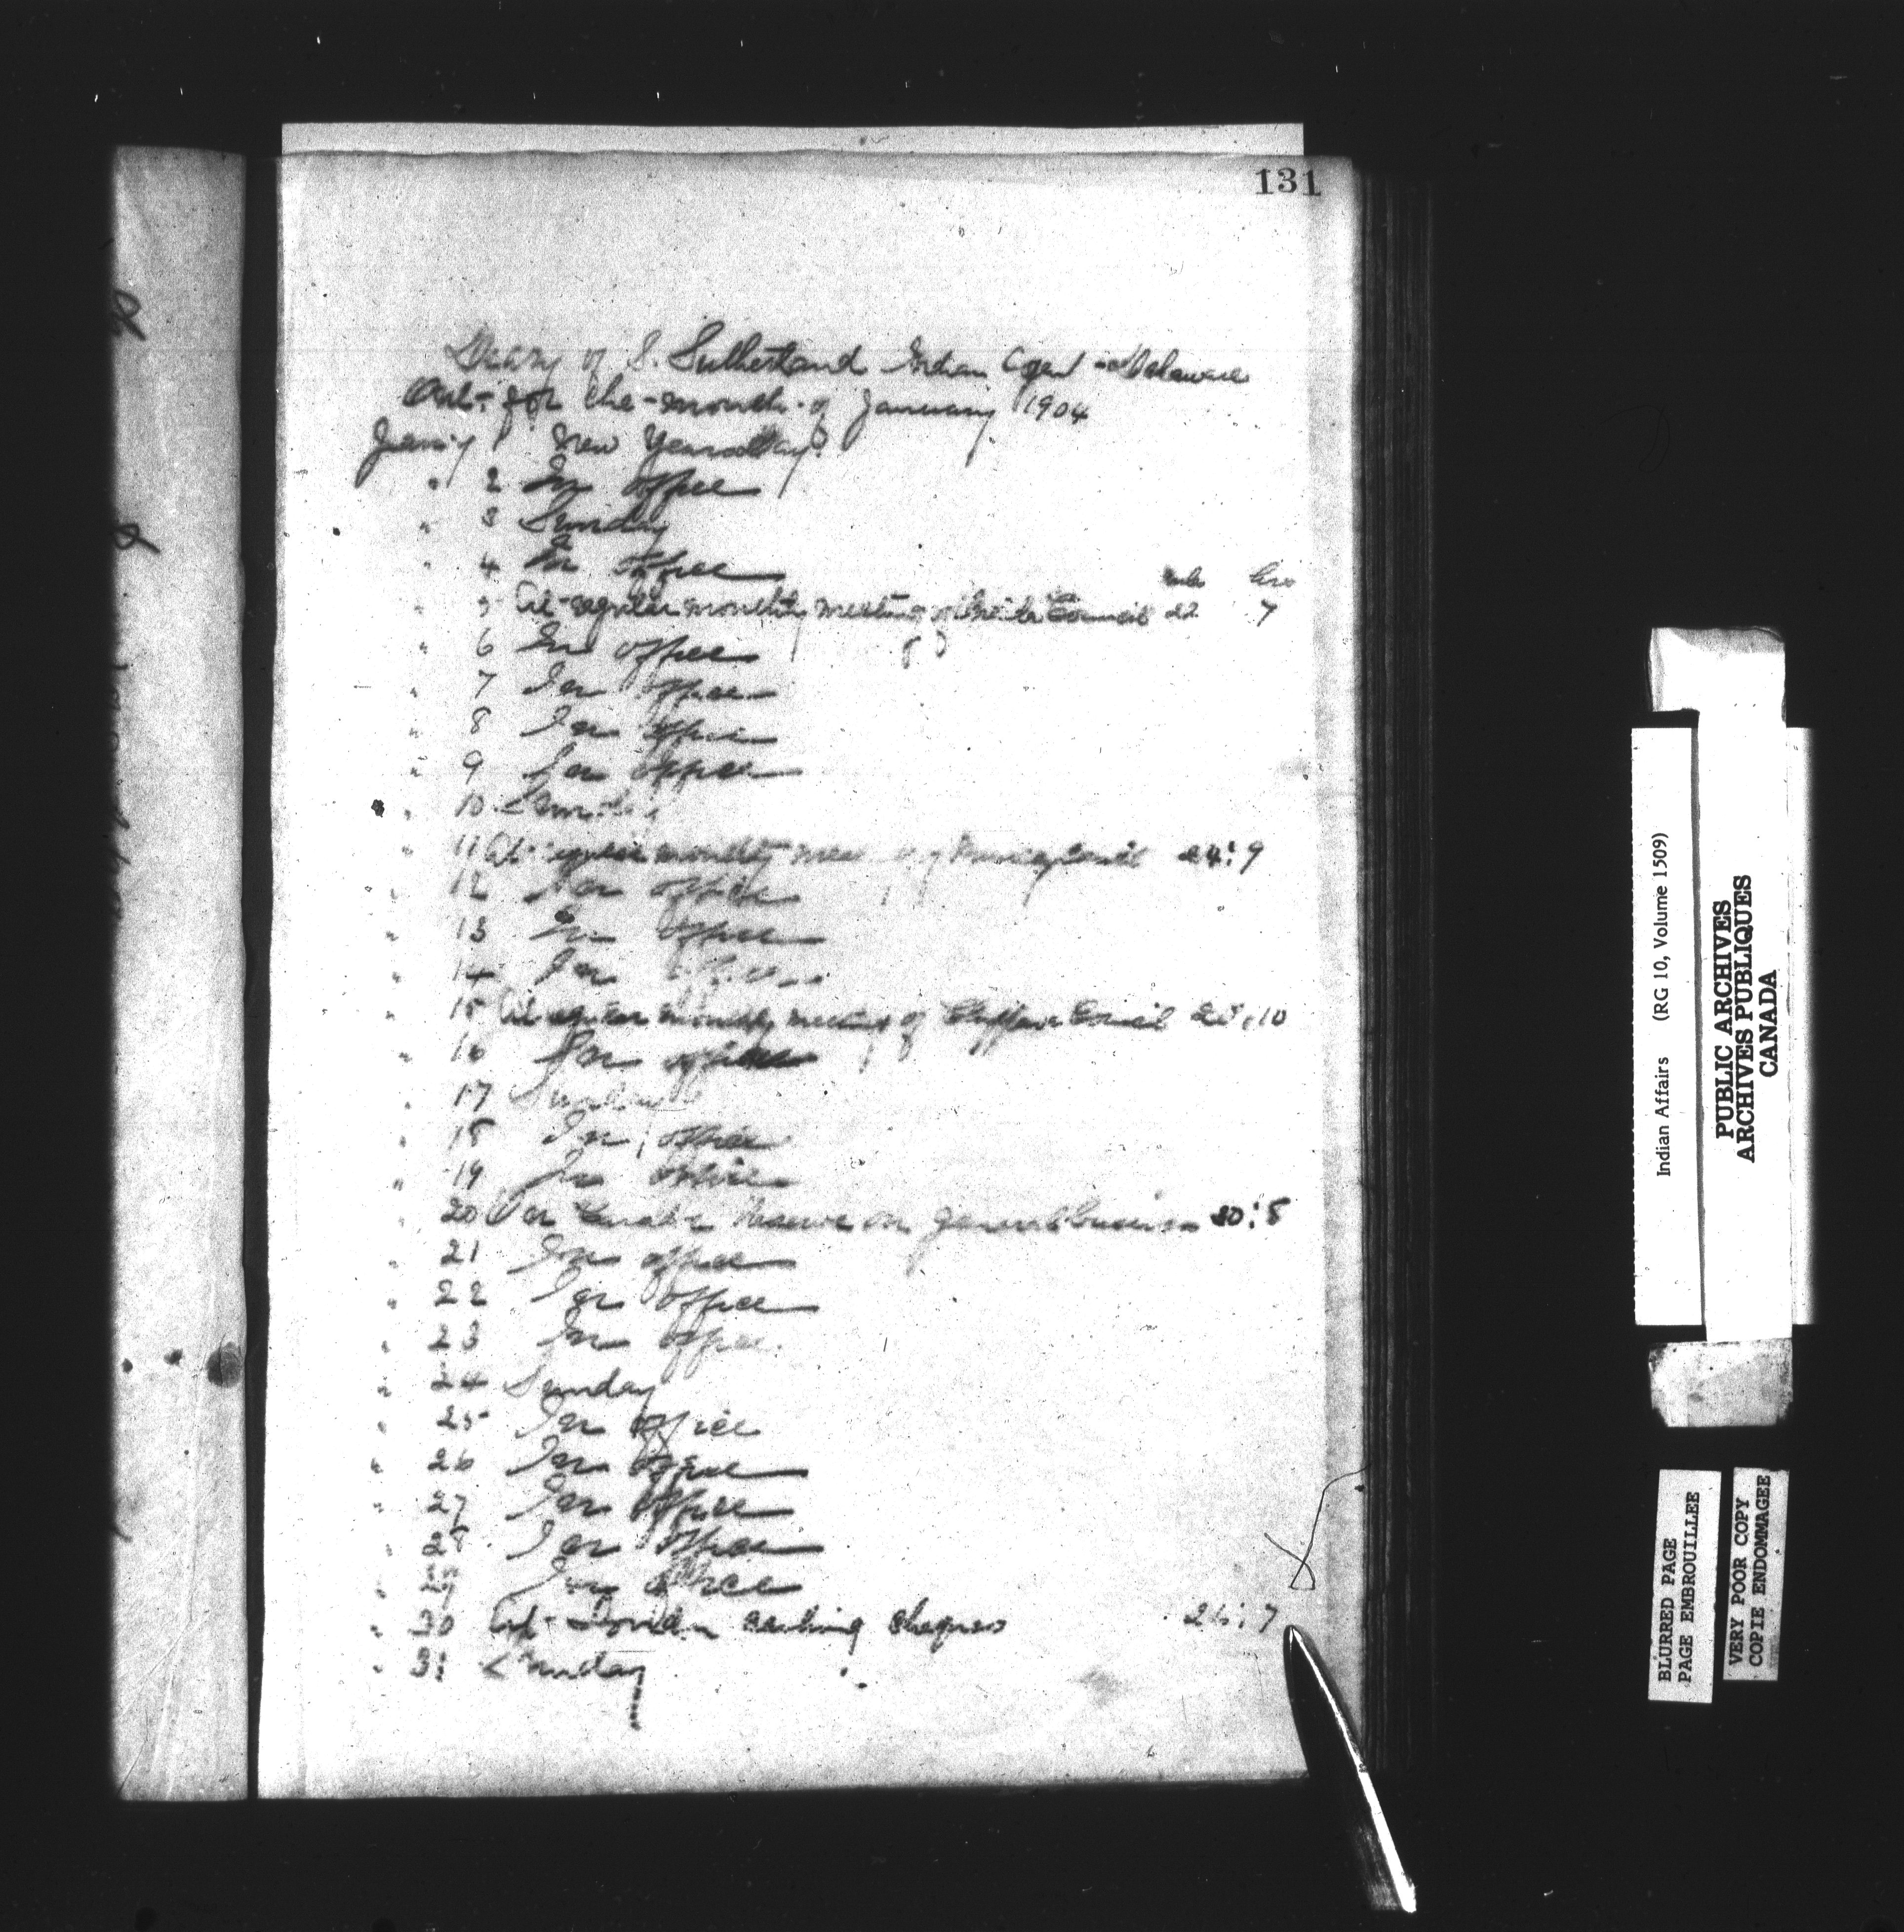 131
Diary of S. Sutherland Indian Agent Delaware
Ont. for the month of January 1904
Jan'y 1 New Years Day
" 2 In office
" 3 Sunday
" 4 In office
miles hrs
" 5 At regular monthly meeting of Oneida Council 22 7
" 6 In office
" 7 In office
" 8 In office
" 9 In office
" 10 Sunday
" 11 At regular monthly meeting of Muncey Council 24 : 9
" 12 In office
" 13 In office
" 14 In office
" 15 At regular monthly meeting of Chippewa Council 25 : 10
" 16 In office
" 17 Sunday
" 18 In office
" 19 In office
" 20 On Reserve on general business 20 : 8
" 21 In office
" 22 In office
" 23 In office
" 24 Sunday
" 25 In office
" 26 In office
" 27 In office
" 28 In office
" 29 In office
" 30 At London cashing cheques 26 : 7
" 31 Sunday
Indian Affairs (RG 10, Volume 1509)
PUBLIC ARCHIVES
ARCHIVES PUBLIQUES
CANADA
BLURRED PAGE
PAGE EMBROUILLEE
VERY POOR COPY
COPIE ENDOMMAGEE